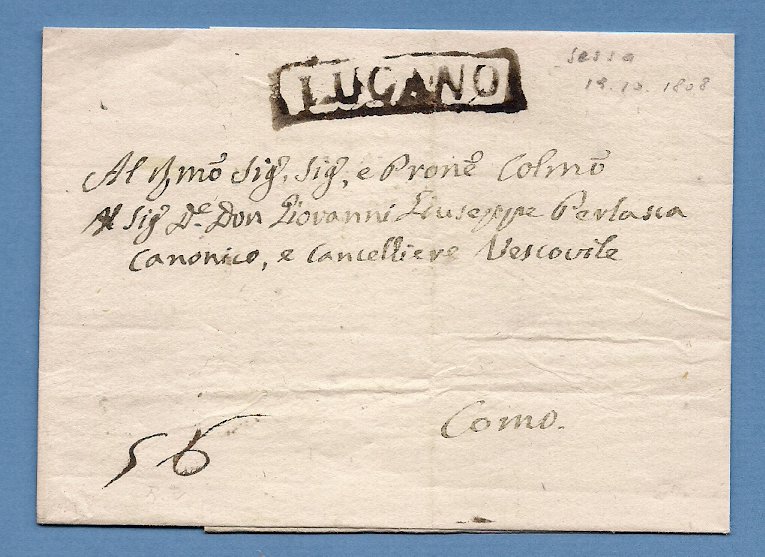 LUGANO
Sessa
19.10.1808
Al Rmõ Sig.r Sig.r, e Pronẽ Colmõ
Al Sig.r D.e Don Giovanni Giuseppe Perlasca
Canonico, e Cancelliere Vescovile
Como.
56